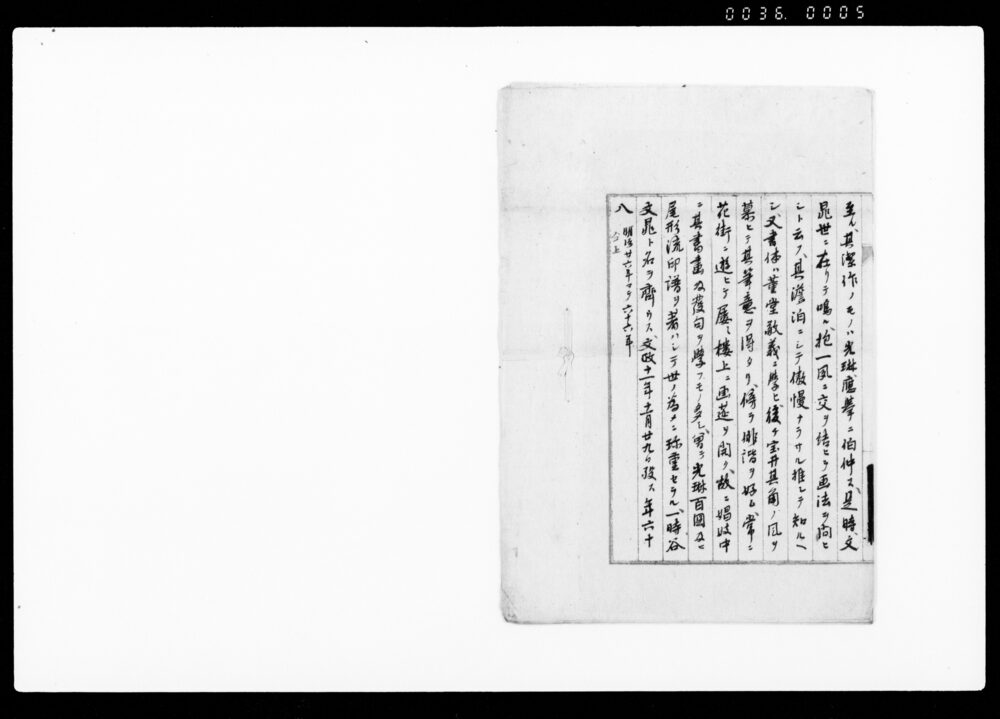 0036. 0005
至ル、其潔作ノモノハ光琳應挙ニ伯仲ス、是時、文
晁世ニ在リテ鳴ル、抱一夙ニ交ヲ結ヒテ画法ヲ問ヒ
シト云フ、其澹泊ニシテ傲慢ナラサル推シテ知ルヘ
シ、又書体ハ董堂敬義ニ學ヒ後チ宝井其角ノ風ヲ
慕ヒテ其筆意ヲ得タリ、傍ラ俳諧ヲ好ム、常ニ
花街ニ遊ヒテ屡〻樓上ニ画莚ヲ開ク、故ニ娼妓中
ニ其書畫及發句ヲ學フモノ多シ、嘗テ光琳百圖及ヒ
尾形流印譜ヲ著ハシテ世ノ為メニ珍重セラル、一時谷
文晁ト名ヲ齊ウス、文政十一年十一月廿九日歿ス、年六十
八 明治廿六年マテ六十六年